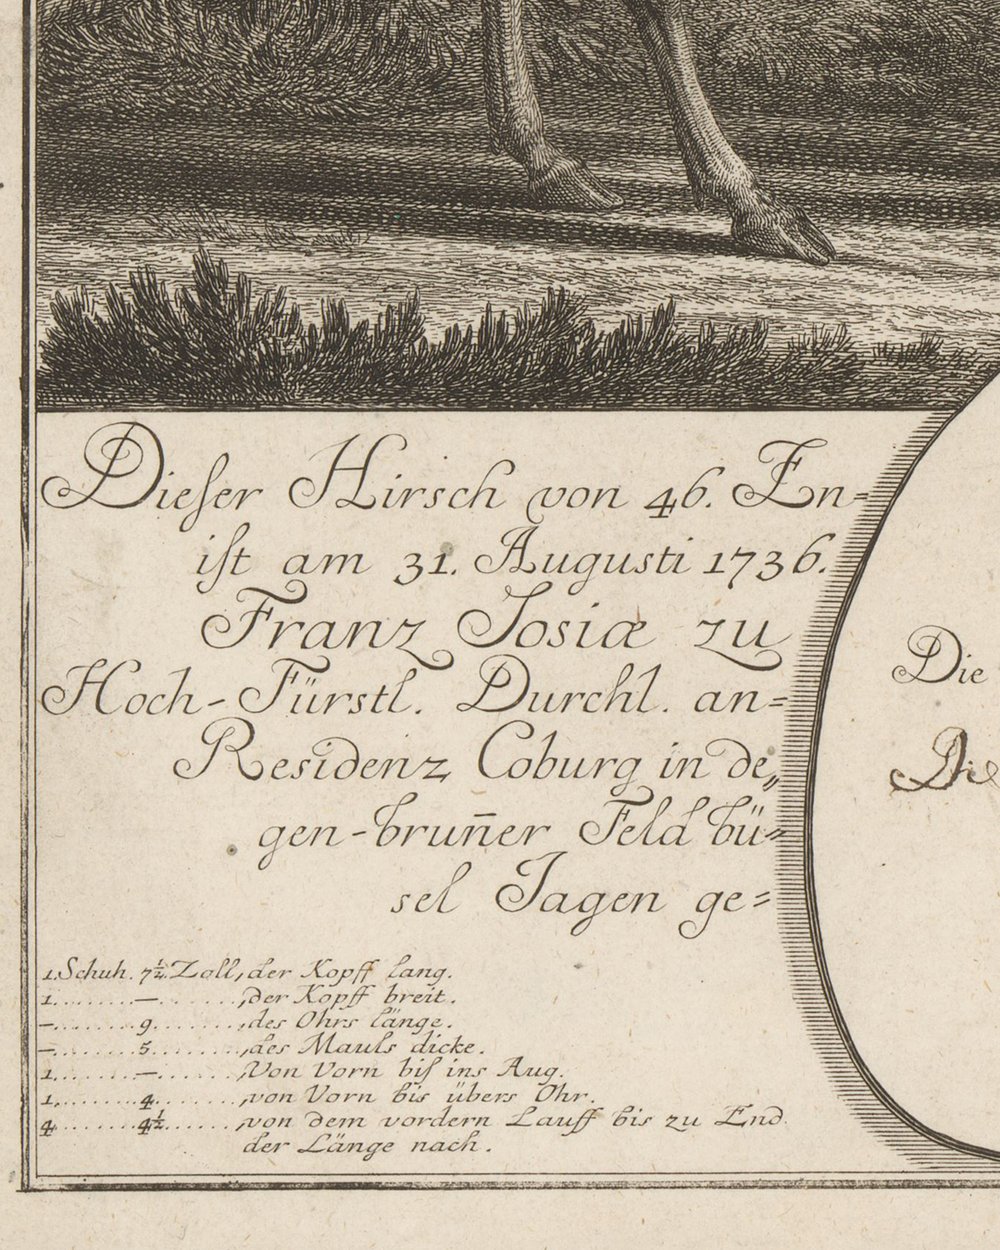 Dieſer Hirsch von 46. En=
iſt am 31. Augusti 1736.
Franz Josiæ zu
Hoch-Fürstl. Durchl. an=
Residenz Coburg in de„
gen-bruñer Feld bü=
sel Jagen ge=
Die
Die
1. Schuh. 7½. Zoll, der Kopff lang.
1........—......., der Kopff breit.
—........9........, des Ohrs länge.
—........5........, des Mauls dicke.
1........—......., Von Vorn biſ ins Aug.
1........4........, von Vorn bis übers Ohr.
4........4½......, von dem vordern Lauff bis zu End
der Länge nach.